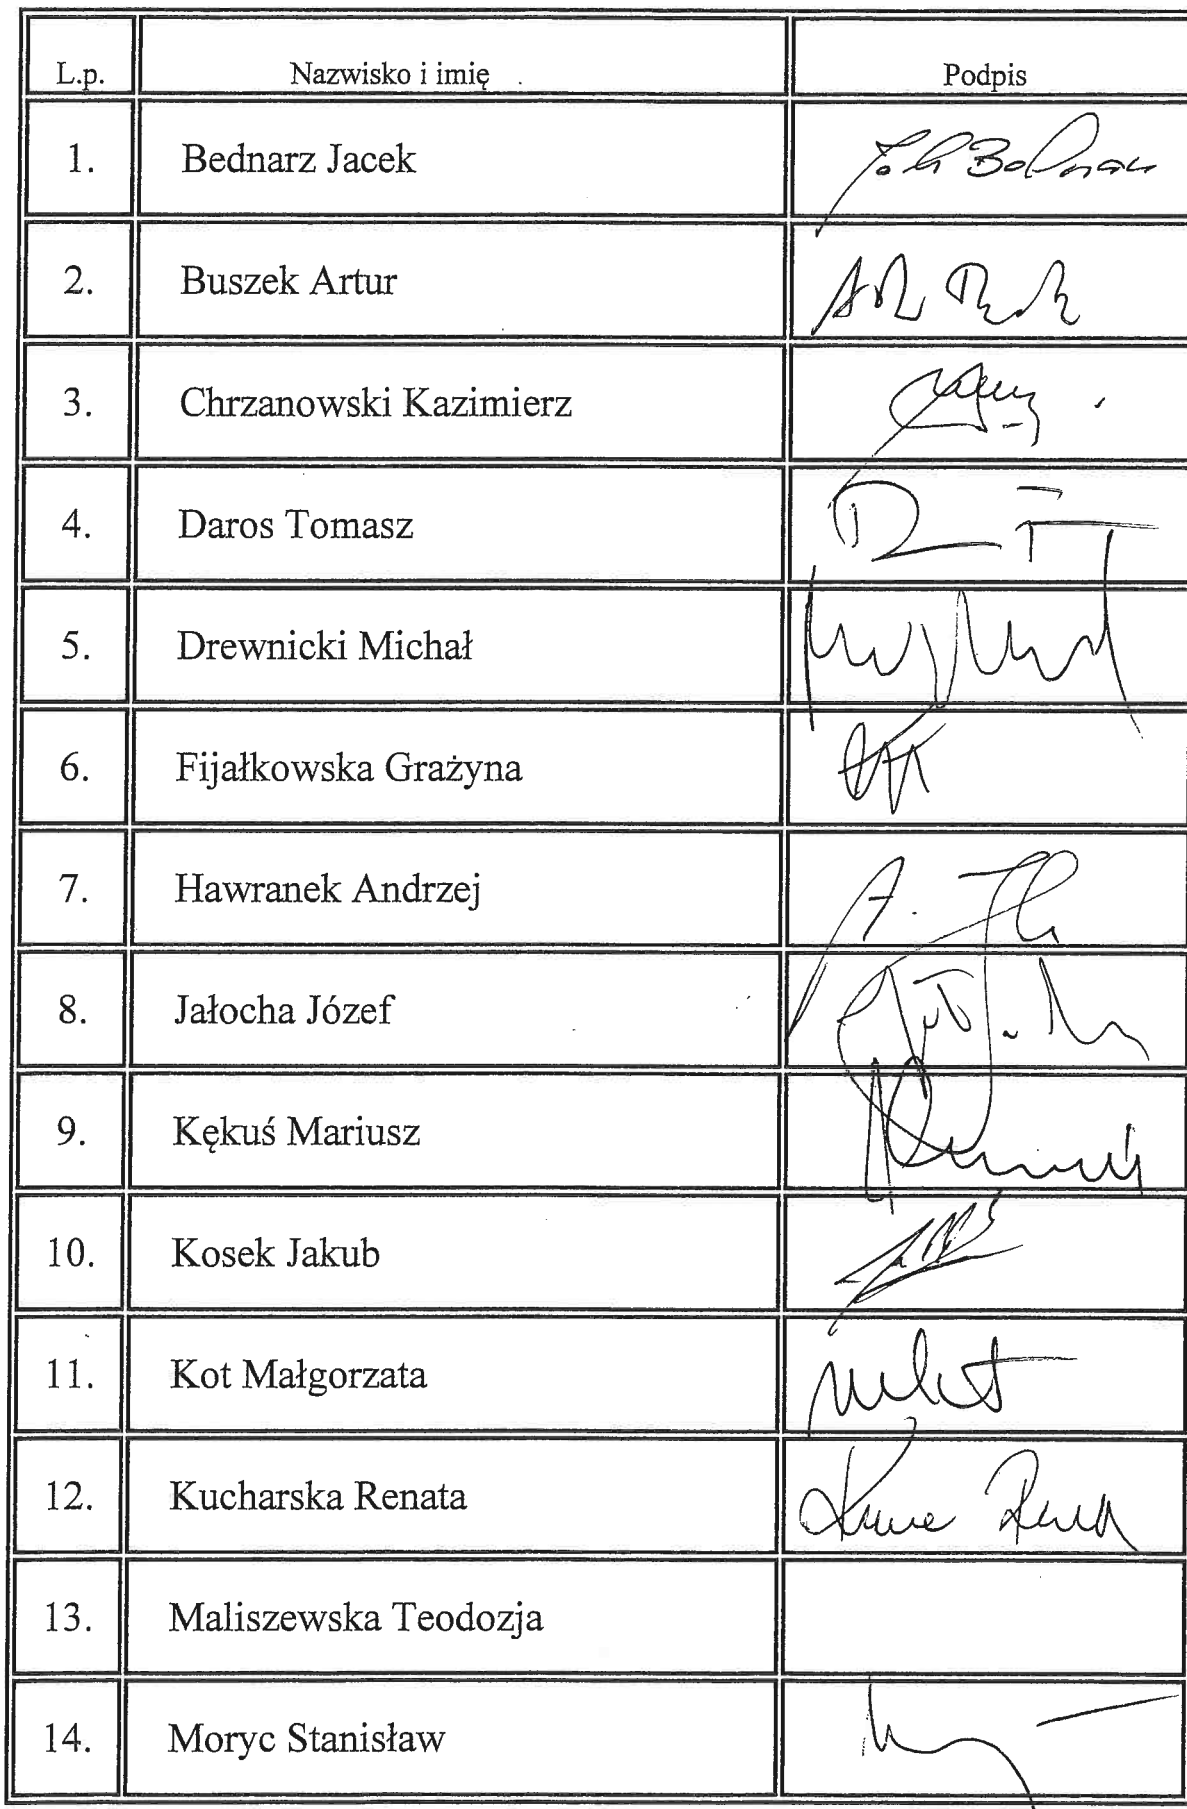 L.p. Nazwisko i imię Podpis
1. Bednarz Jacek
2. Buszek Artur
3. Chrzanowski Kazimierz
4. Daros Tomasz
5. Drewnicki Michał
6. Fijałkowska Grażyna
7. Hawranek Andrzej
8. Jałocha Józef
9. Kękuś Mariusz
10. Kosek Jakub
11. Kot Małgorzata
12. Kucharska Renata
13. Maliszewska Teodozja
14. Moryc Stanisław